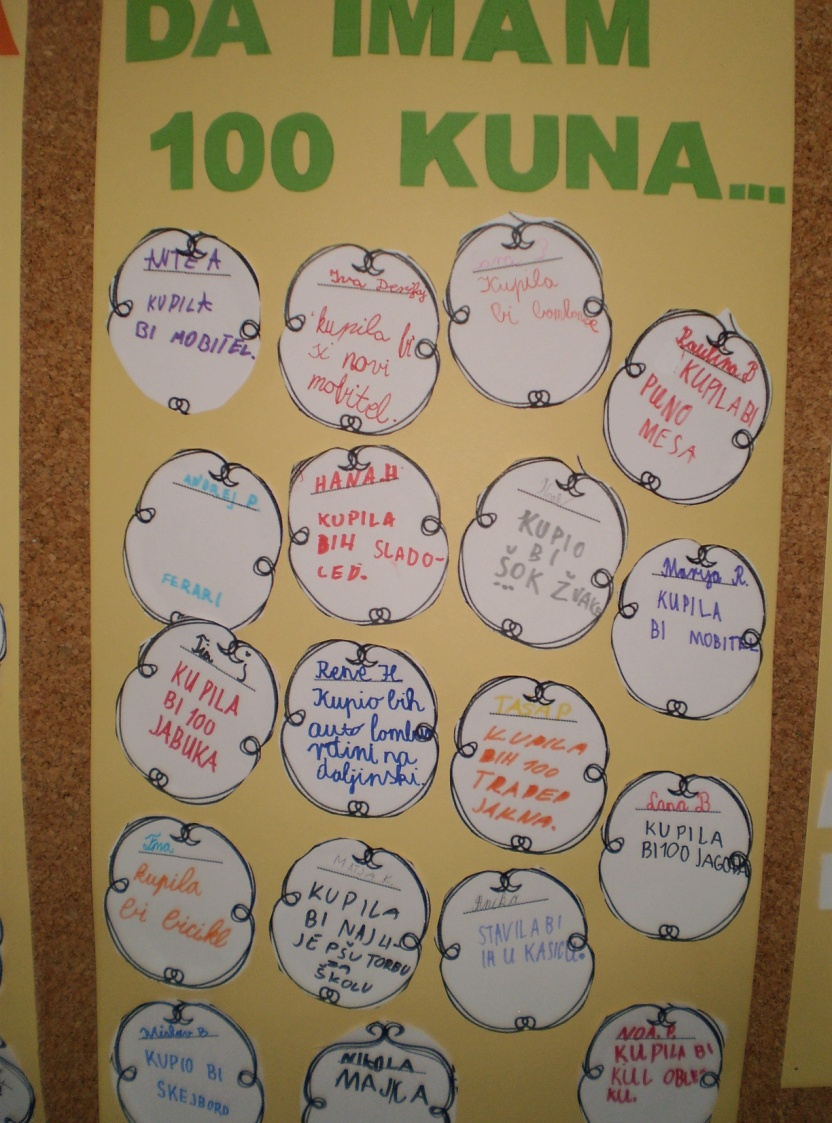 DA IMAM
100 KUNA...
ANTE A
KUPILA
BI MOBITEL.
Iva
kupila bi
si novi
mobitel.
Kupila
bi bombone
Paulina B
KUPILA BI
PUNO
MESA
ANDREJ P.
FERARI
HANA.H
KUPILA
BIH SLADO-
LED.
KUPIO
BI
ŠOK ŽVAKE
Marija R.
KUPILA
BI MOBITEL
KUPILA
BI 100
JABUKA
Rene H
Kupio bih
auto
na
daljinski.
TASA P
KUPILA
BIH 100
TRAPER
JAKNA.
Lana B
KUPILA
BI 100 JAGODA
Ima
kupila
bi bicikl
MAŠA K.
KUPILA
BI NAJLI-
JEPŠU TORBU
ZA
ŠKOLU
STAVILA BI
IH U KASICU.
Mislav B
KUPIO BI
SKEJBORD
NIKOLA
MAJICA
NOA. P.
KUPILA BI
KUL OBLE-
KU.